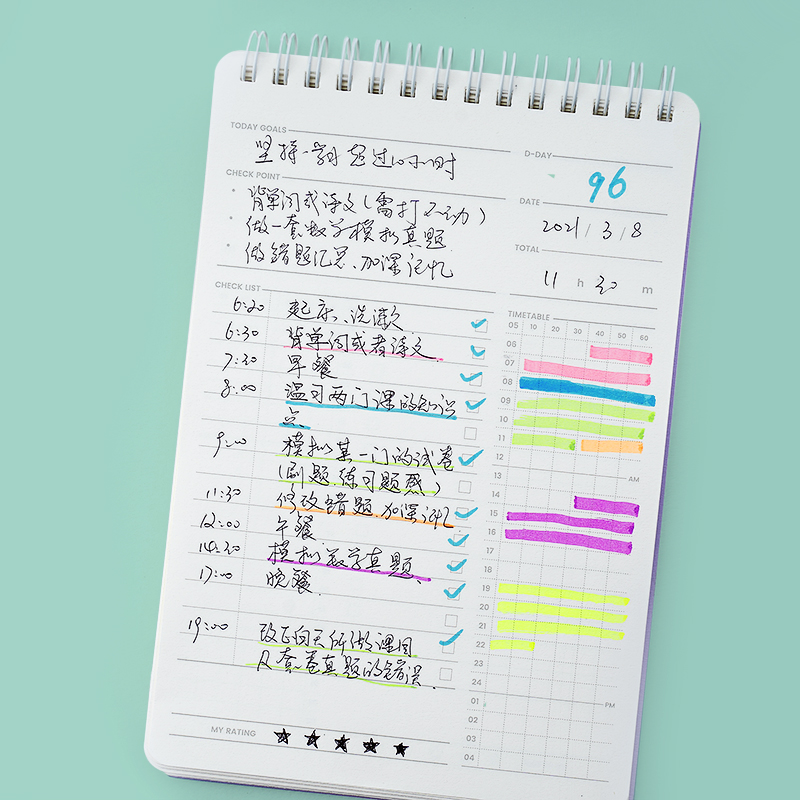 TODAY GOALS
坚持一学习超过10小时
D-DAY
96
CHECK POINT
背单词或课文(需打不动)
做一套数学模拟真题
做错题汇总、加深记忆
DATE
2021 / 3 / 8
TOTAL
11 h 30 m
CHECK LIST
6:20 起床、洗漱
6:30 背单词或者课文
7:30 早餐
8:00 温习两门课的知识
点、
9:00 模拟某一门的试卷
(刷题、练习题感)
11:30 修改错题、加深记忆
12:00 午餐
14:30 模拟数学真题、
17:00 晚餐
19:00 改正白天所做课目
及套卷真题的错误
TIMETABLE
05 10 20 30 40 50 60
06
07
08
09
10
11
12
AM
13
14
15
16
17
19
20
21
22
23
24
01 PM
02
03
04
MY RATING